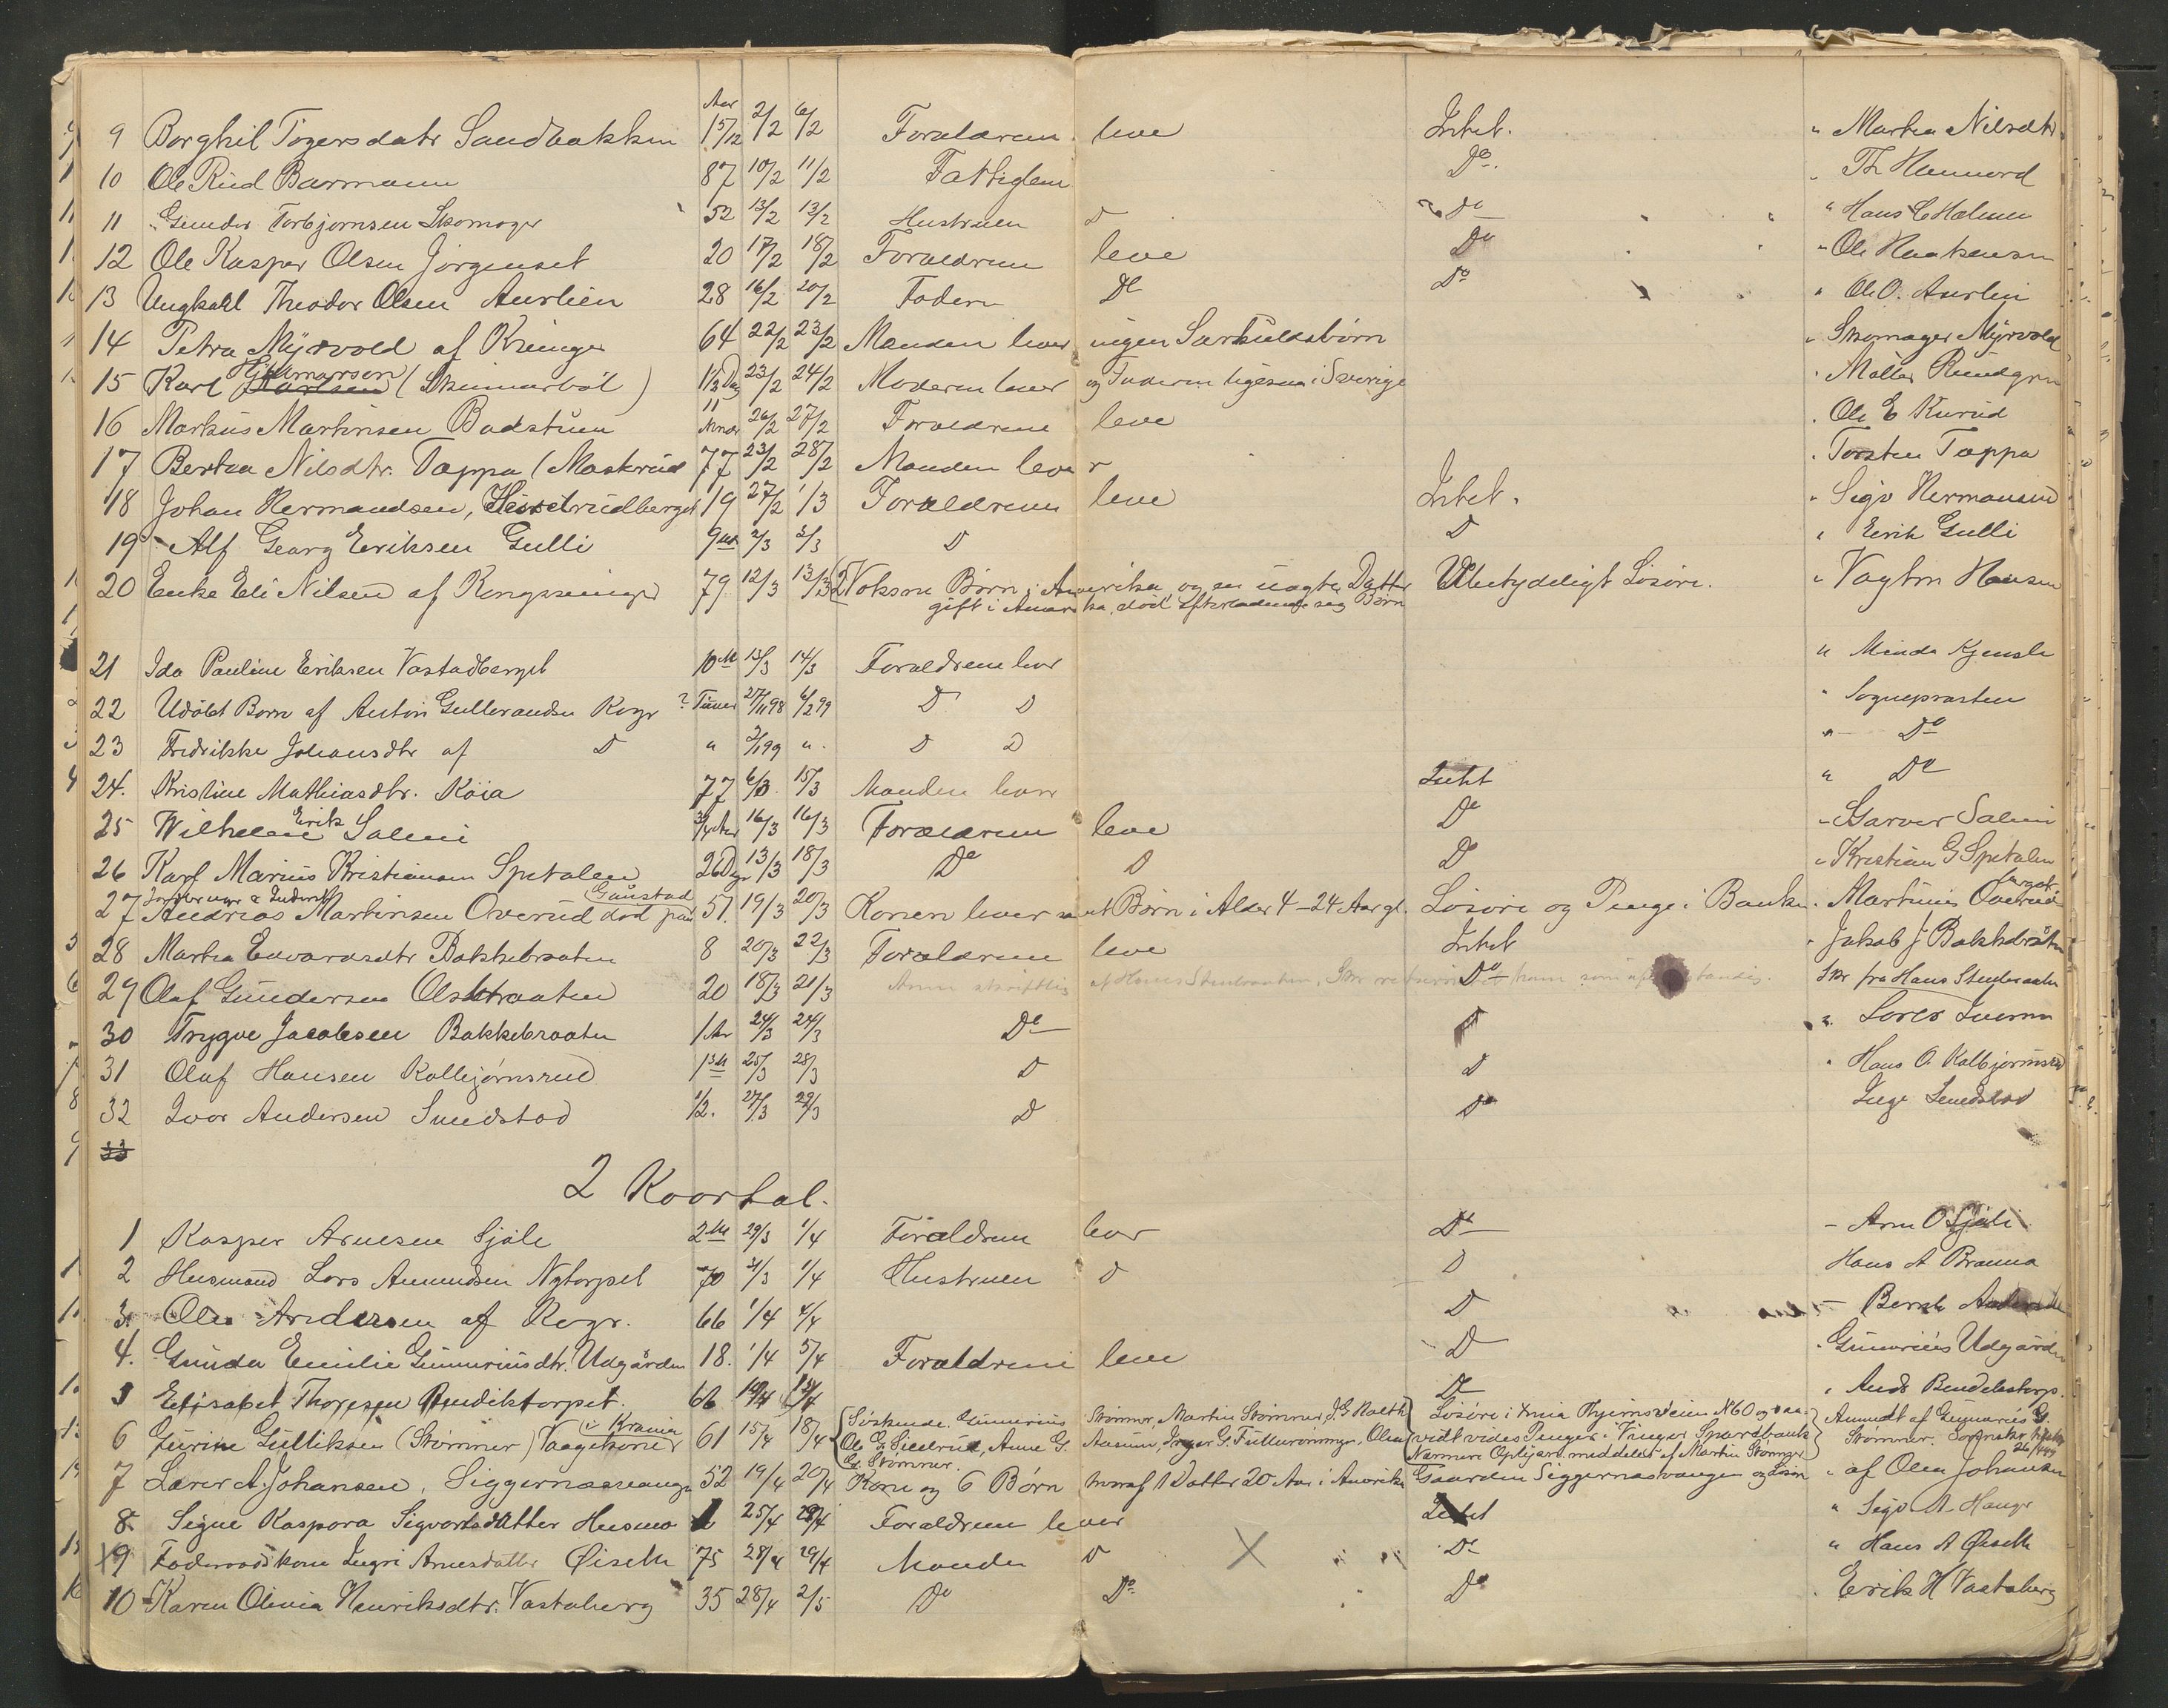 9 Borghil Togersdatr Sandbakken Aar 15/12 2/2 6/2 Forældrene leve Intet. " Martea Nilsdtr
10 Ole Rud Barmann 87 10/2 11/2 Fattiglem Do. " Th Hennord
11 Gunder Torbjørnsen Skomager 52 13/2 13/2 Hustruen D Do " Hans C Holmen
12 Ole Kasper Olsen Jørgenset 20 17/2 18/2 Forældrene leve Do " Ole Haakensen
13 Ungkarl Theodor Olsen Aurlien 28 16/2 20/2 Faderen Do Do " Ole O. Aurlien
14 Petra Myrvold af Kvinger 64 22/2 23/2 Manden lever ingen Særkuldsbørn " Skomager Myrvold
Hjelmarsen
15 Karl Karlsen (Skinnarbøl) 1/3 Dag 23/2 24/2 Moderen lever og Faderen ligesaa i Sverige " Møller Rundgren
16 Markus Martinsen Badstuen 11 Mndr 26/2 27/2 Forældrene leve " Ole E Kurud
17 Bertea Nilsdtr. Tappa (Maskrud 77 23/2 28/2 Manden lever " Torsten Tappa
18 Johan Hermandsen, Heisetrudberget 19 27/2 1/3 Forældrene leve Intet. " Sigv Hermansen
19 Alf Georg Eriksen Gulli 9 M 2/3 3/3 D D " Erik Gulli
20 Enke Eli Nilsen af Kongsvinger 79 12/3 13/3 2 Voksne Børn i Amerika og en uægte Datter Ubetydeligt Løsøre. " Vagtm Hansen
gift i Amerika, død, efterladende sig Børn
21 Ida Pauline Eriksen Vastadberget 10 M 13/3 14/3 Forældrene lever " Minda Kjensle
22 Udøbt Barn af Anton Gulbrandsen Kogr ? Timer 27/11 98 6/2 99 D D " Sognepræsten
23 Fredrikke Johansdtr af D " 2/1 99 " D D " Do
24. Kristine Mathiasdtr. Køia 77 6/3 15/3 Manden lever Intet " Do
25 Wilhelm Erik Salmi 3/4 Aar 16/3 16/3 Forældrene leve Do " Garver Salmi
26 Karl Marius Kristiansen Spetalen 26 Dgr 13/3 18/3 Do D D " Kristian G Spetalen
Gaustad
27 Andreas Martinsen Overud død paa 51. 19/3 20/3 Konen lever samt Børn i Alder 4-24 Aar gl. Løsøre og Penge i Banken " Martinus Overud
28 Martea Edvardsdtr Bakkebraaten 8 20/3 22/3 Forældrene leve Intet " Jakob J Bakkebråten
29 Olaf Gundersen Olsbraaten 20 18/3 21/3 Anm skriftlig af Hans Stenbraaten, Skr Do Skr fra Hans Stenbraaten
30 Trygve Jacobsen Bakkebraaten 1 Aar 24/3 24/3 Do D
31 Olaf Hansen Kolbjørnsrud 1 3M 25/3 28/3 D D " Hans O. Kolbjørnsrud
32 Ivar Andersen Sundstad 1/2. 27/3 29/3 D Do Inge Sundstad
33
2 Kvartal.
1 Kasper Arnesen Sjøle 2 M 29/3 1/4 Forældrene lever Do - Arne O Sjøli
2 Husmand Lars Amundsen Nytorpet 70 31/3 1/4 Hustruen D D Hans A Branna
3. Ole Andersen af Kogr. 66 1/4 4/4 D - Bernh
4. Gunda Emilie Gunneriusdtr. Udgården 18. 1/4 5/4 Forældrene leve D " Gunerius Udgården
5 Elisabet Thoresen Bendikstorpet. 66 12/4 13/4 Do " Ands Bendikstorp.
i Krania
6 Gurine Gulliksen (Strømner) Vaagekone 61 15/4 18/4 Søskende: Gunnerius Strømner, Martin Strømner, J.G. Holth Løsøre i Xnia Hjemsveien N 60 og saa Anmeldt af Gunnerius G.
Ole G. Siedrud, Anne G. Aasum, Inger G. Fulluvømmer, Olea vidt vides Penger i Vinger Sparebank Strømner
G. Strømner. Nærmere Oplysn. meddeles af Martin Strømner
7 Lærer A. Johansen, Siggernæsvangen 52 19/4 20/4 Kone og 6 Børn hvoraf 1 Datter 20 Aar i Amerika Gaarden Siggernæsvangen og Løsøre " af Olea Johansen
8. Signe Kaspara Sigvartsdatter Husmo 25/4 28/4 Forældrene lever Intet " Sigv. A Hanger
9 Føderaadskone Ingri Arnesdatter Øiseth 75 28/4 29/4 Manden D X Do " Hans A Øiseth
10 Karen Olivia Henriksdtr. Vastaberg 35 28/4 2/5 Do Do Do " Erik H Vastaberg